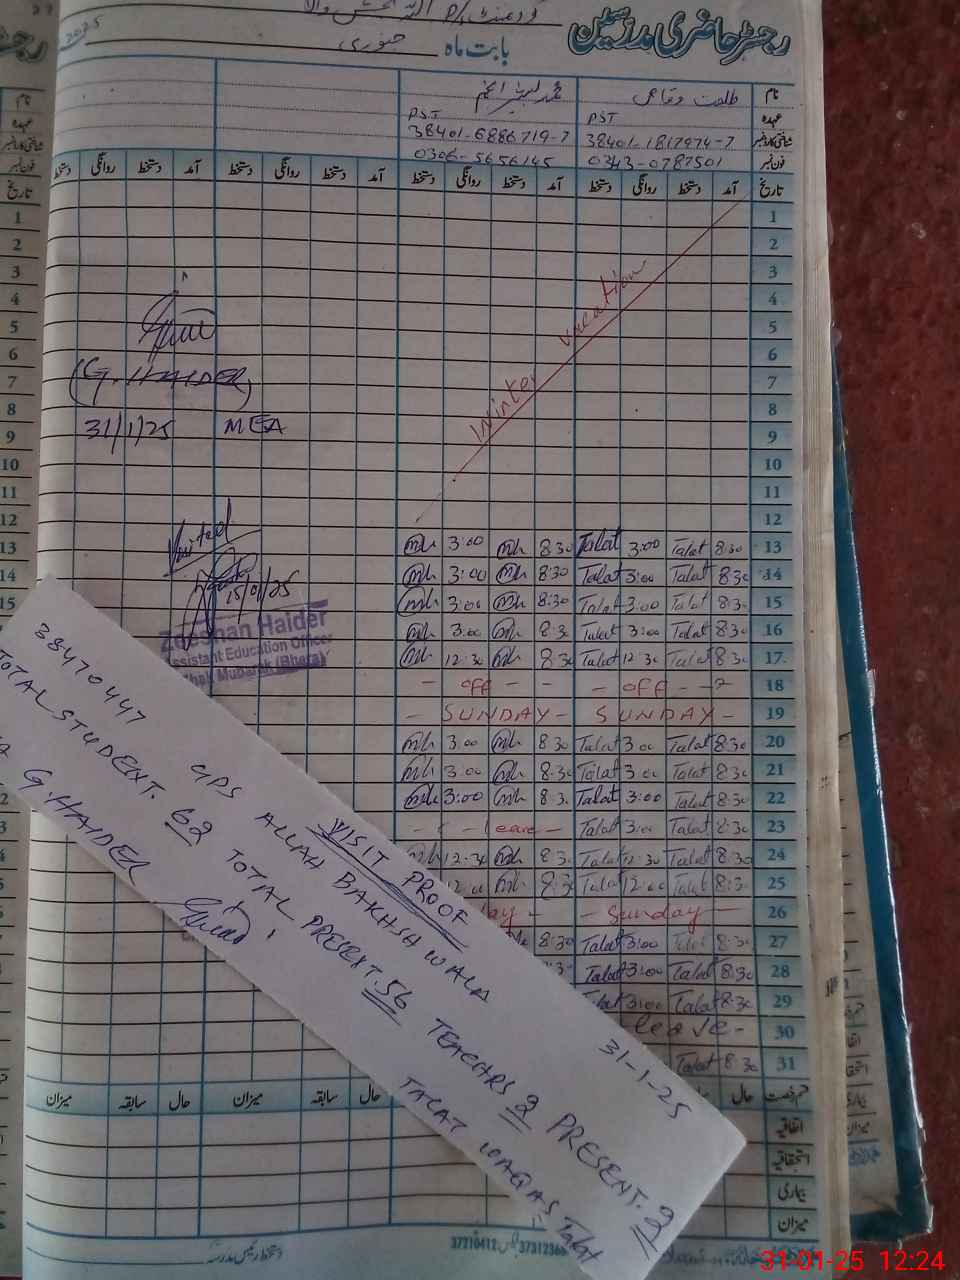 رجسٹر حاضری مدرسین
بابت ماہ جنوری
2025
نام طلعت وقاص
عہدہ PST PST
شناختی کارڈ نمبر 38401-1817974-7 38401-6886719-7
فون نمبر 0343-0787501 0306-5656145
تاریخ آمد دستخط روانگی دستخط آمد دستخط روانگی دستخط آمد دستخط روانگی دستخط آمد دستخط روانگی دستخط
1
2
3
4
5
6
7
8
9
10
11
12
Winter vacation
(G. HAIDER)
31/1/25 MEA
3:00 8:30 Talat 3:00 Talat 8:30 13
3:00 8:30 Talat 3:00 Talat 8:30 14
3:00 8:30 Talat 3:00 Talat 8:30 15
3:00 8:30 Talat 3:00 Talat 8:30 16
12:30 8:30 Talat 12:30 Talat 8:30 17
- off - - - off - - 18
- SUNDAY - SUNDAY - 19
3:00 8:30 Talat 3:00 Talat 8:30 20
3:00 8:30 Talat 3:00 Talat 8:30 21
3:00 8:30 Talat 3:00 Talat 8:30 22
- - leave - Talat 3:00 Talat 8:30 23
12:30 8:30 Talat 12:30 Talat 8:30 24
12:00 8:30 Talat 12:00 Talat 8:30 25
- Sunday - 26
8:30 Talat 3:00 Talat 8:30 27
Talat 3:00 Talat 8:30 28
Talat 3:00 Talat 8:30 29
leave - 30
Talat 8:30 31
Visited
15/01/25
Zeeshan Haider
Assistant Education Officer
Mubarak (Bhera)
VISIT PROOF
38470447 GPS ALLAH BAKHSH WALA 31-1-25
TOTAL STUDENT. 62 TOTAL PRESENT. 56 TEACHRS 2 PRESENT. 2
G. HAIDER TALAT WAQAS Talat
حال سابقہ میزان حال سابقہ میزان
اتفاقیہ
استحقاقیہ
بیماری
میزان
37210412 37312366
31-01-25 12:24